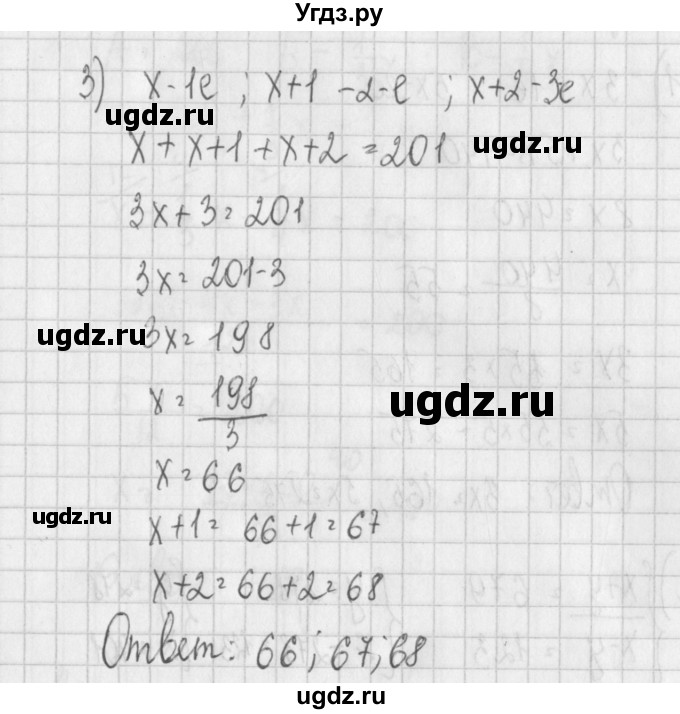 Угдз.ру
3) x - 1е ; x+1 - 2-е ; x+2 - 3е
ugdz.ru
ugdz.ru
x + x+1 + x+2 = 201
3x + 3 = 201
3x = 201-3
ugdz.ru
3x = 198
x = 198/3
ugdz.ru
x = 66
ugdz.ru
x+1 = 66+1 = 67
x+2 = 66+2 = 68
Ответ: 66; 67; 68
ugdz.ru